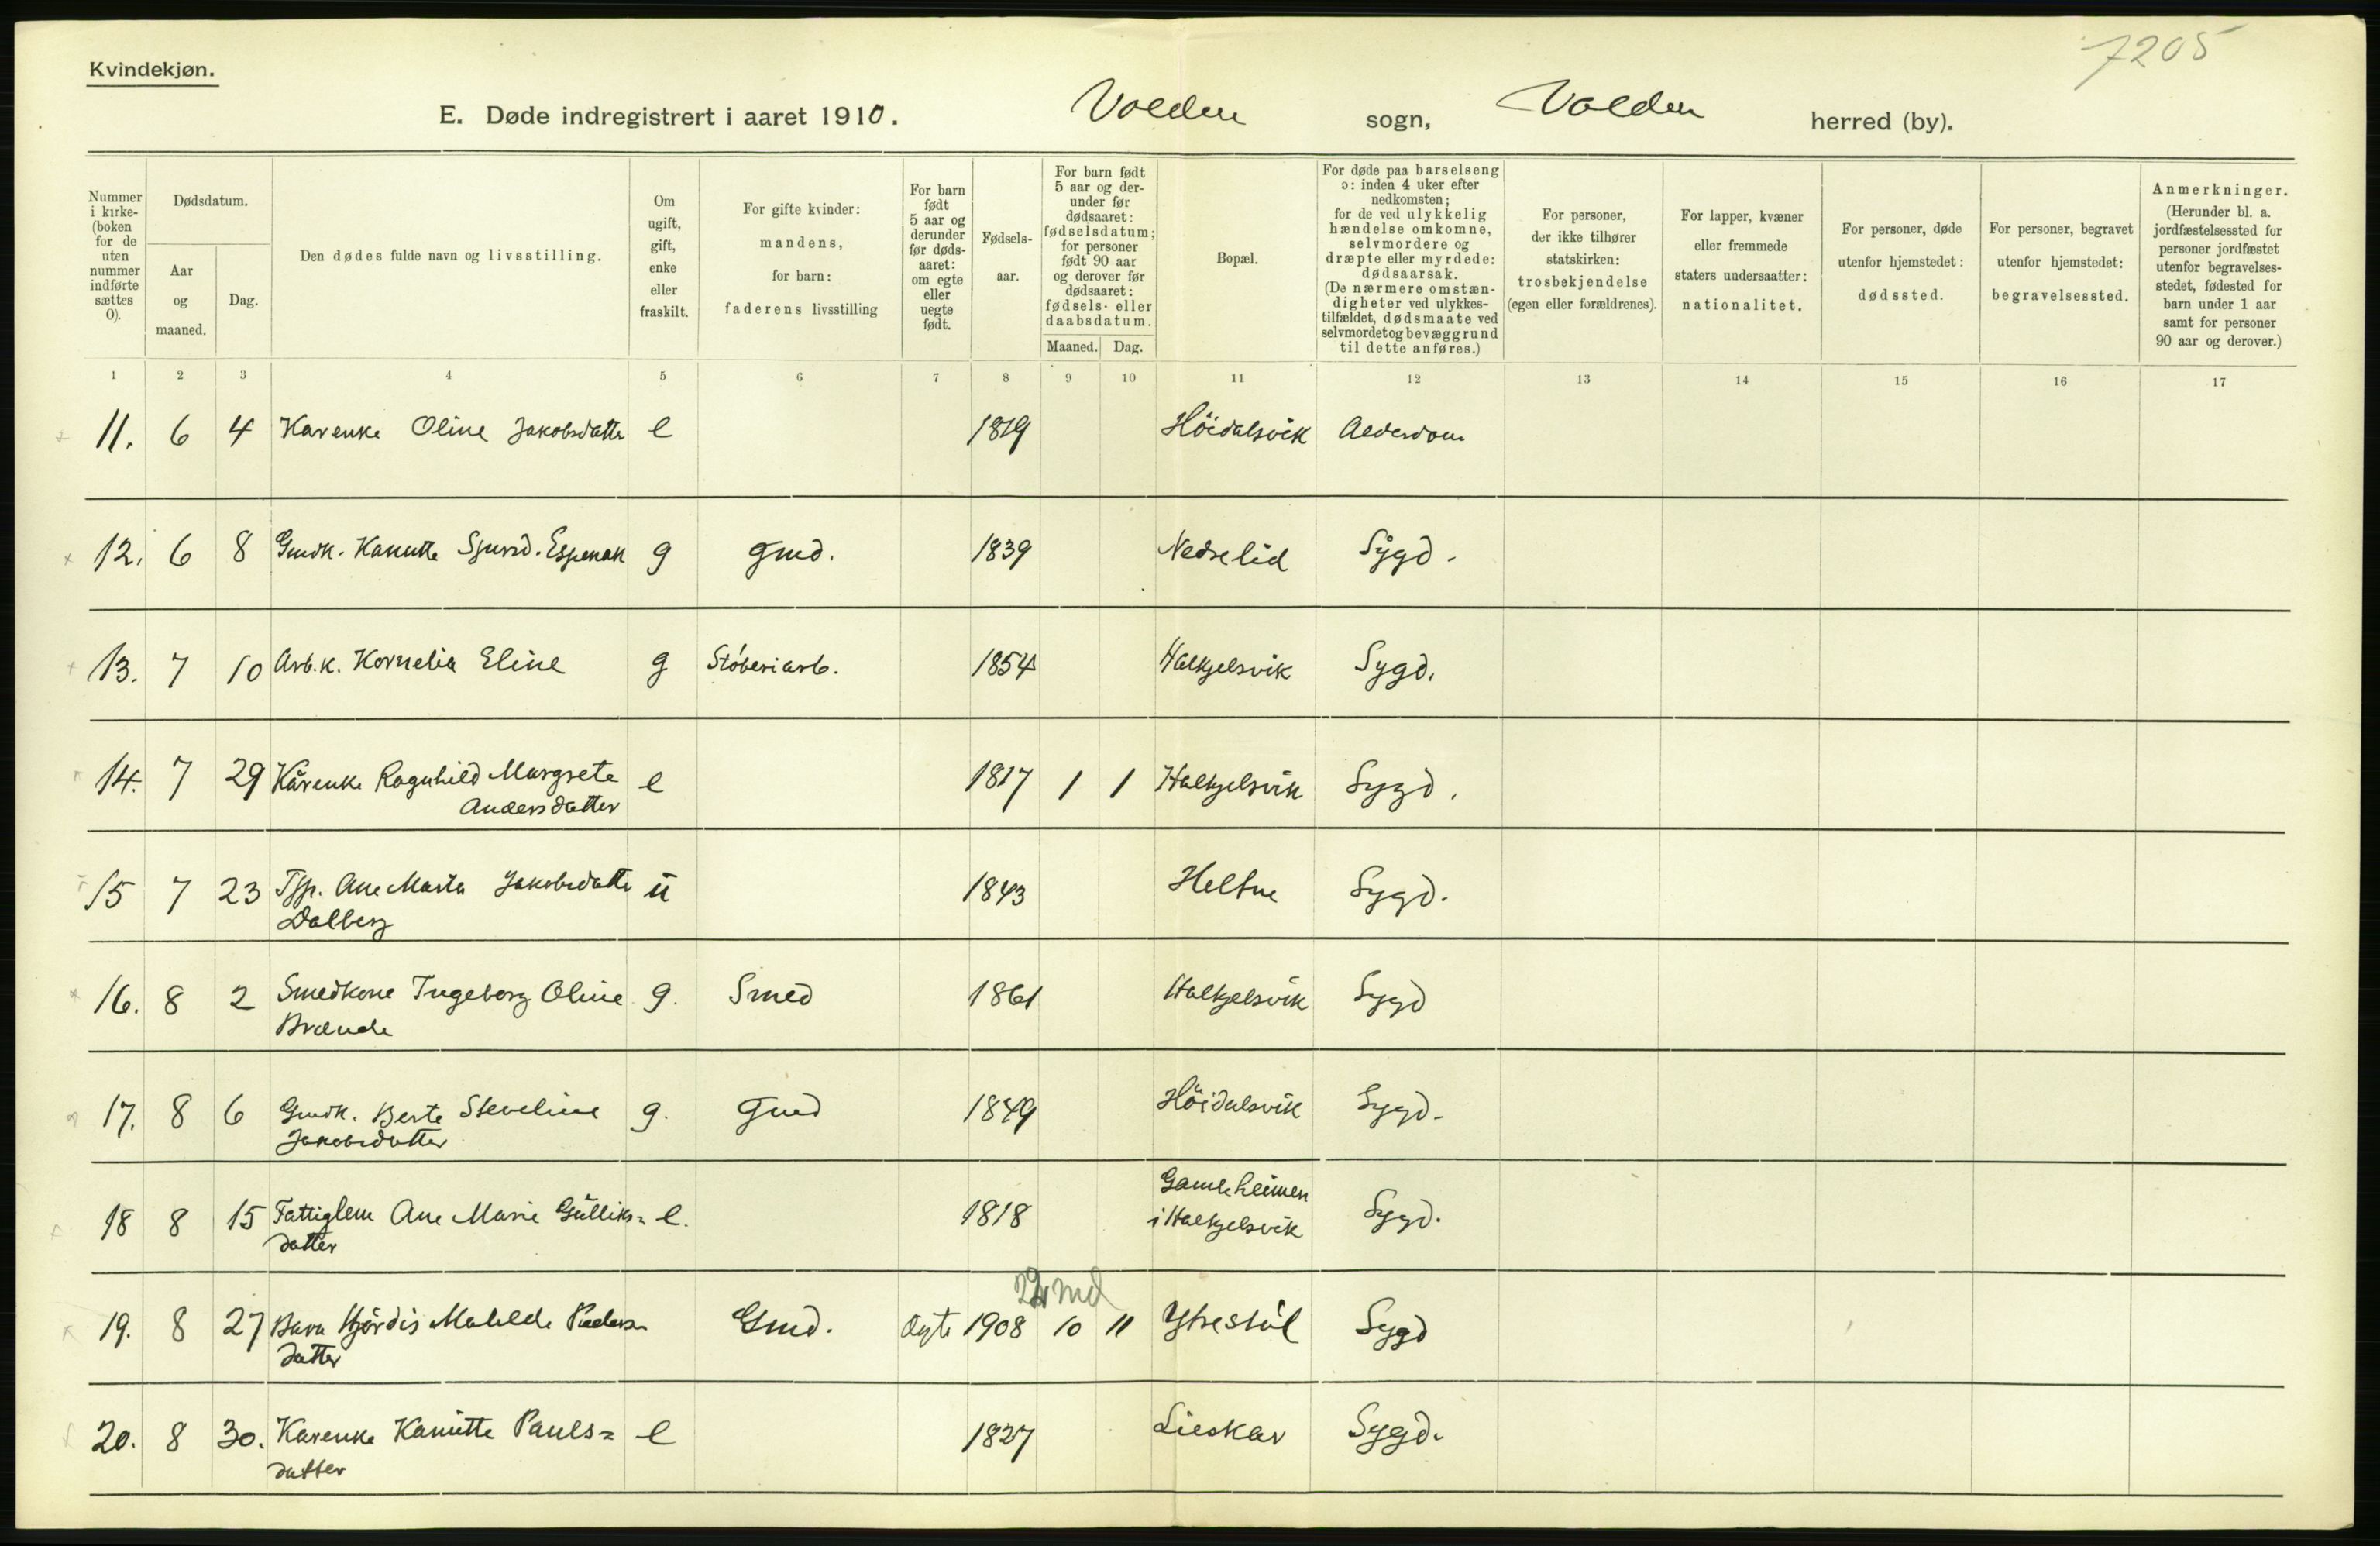 7205
Kvindekjøn.
E. Døde indregistrert i aaret 1910. Volden sogn, Volden herred (by).
Nummer i kirke- (boken for de uten nummer indførte sættes 0).
Dødsdatum.
Aar og maaned.
Dag.
Den dødes fulde navn og livsstilling.
Om ugift, gift, enke eller fraskilt.
For gifte kvinder: mandens, for barn: faderens livsstilling
For barn født 5 aar og derunder før døds- aaret: om egte eller uegte født.
Fødsels- aar.
For barn født 5 aar og der- under før dødsaaret: fødselsdatum; for personer født 90 aar og derover før dødsaaret: fødsels- eller daabsdatum.
Maaned. Dag.
Bopæl.
For døde paa barselseng ɔ: inden 4 uker efter nedkomsten; for de ved ulykkelig hændelse omkomne, selvmordere og dræpte eller myrdede: dødsaarsak. (De nærmere omstæn- digheter ved ulykkes- tilfældet, dødsmaate ved selvmordet og bevæggrund til dette anføres.)
For personer, der ikke tilhører statskirken: trosbekjendelse (egen eller forældrenes).
For lapper, kvæner eller fremmede staters undersaatter: nationalitet.
For personer, døde utenfor hjemstedet: dødssted.
For personer, begravet utenfor hjemstedet: begravelsessted.
Anmerkninger. (Herunder bl. a. jordfæstelsessted for personer jordfæstet utenfor begravelses- stedet, fødested for barn under 1 aar samt for personer 90 aar og derover.)
1 2 3 4 5 6 7 8 9 10 11 12 13 14 15 16 17
11. 6 4 Karenke Oline Jakobsdatter e 1819 Höidalsvik Alderdom
12. 6 8 Gmdk. Kanutte Sjursd. Espenak g gmd. 1839 Nedrelid Sygd.
13. 7 10 Arb.k. Kornelia Eline g Stóberiarb. 1854 Halkjelsvik Sygd.
14. 7 29 Kårenke Ragnhild Margrete e 1817 1 1 Halkjelsvik Sygd.
Andersdatter
15 7 23 Ane Marta Jakobsdatter u 1843 Heltne Sygd.
Dalberg
16. 8 2 Smedkone Ingeborg Oline g. Smed 1861 Halkjelsvik Sygd
Brænde
17. 8 6 Gmdk. Berte Steveline g. Gmd 1849 Höidalsvik Sygd.
Jakobsdatter
Gamleheimen
18 8 15 Fattiglem Ane Marie Gulliks= e. 1818 i Halkjelsvik Sygd.
datter
22 md
19. 8 27 Barn Hjördis Matilde Peders= Gmd. Ægte 1908 10 11 Ytrestöl Sygd
datter
20. 8 30. Karenke Kanutte Pauls= e 1827 Lieskar Sygd.
datter